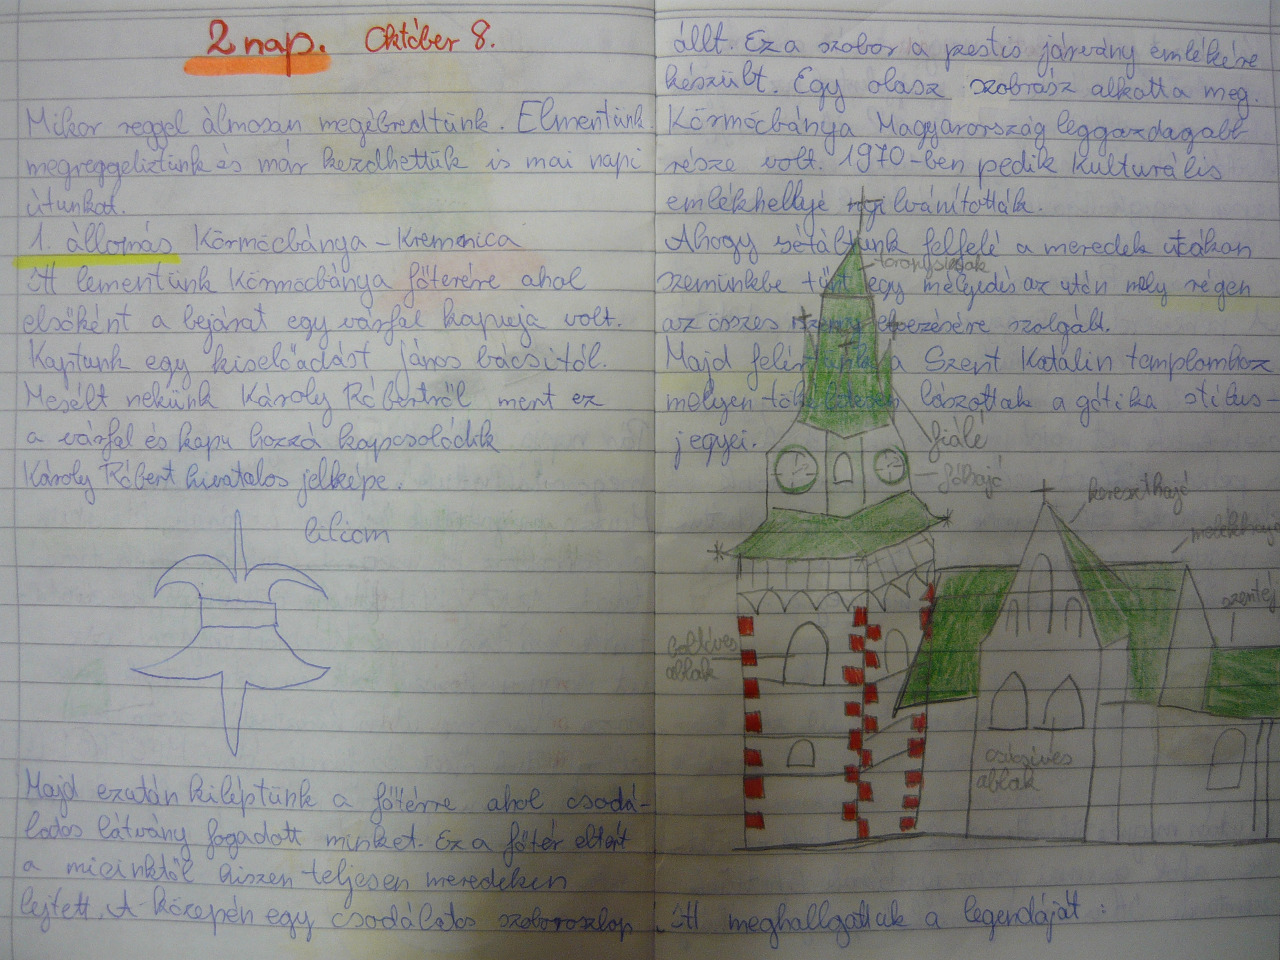 2 nap. Október 8.
Mikor reggel álmosan megébredtünk. Elmentünk
megreggeliztünk és már kezdhettük is mai napi
útunkat.
1. állomás Körmöcbánya - Kremnica
Itt lementünk Körmöcbánya főterére ahol
elsőként a bejárat egy várfal kapuja volt.
Kaptunk egy kiselőadást János bácsitól.
Mesélt nekünk Károly Róbertről mert ez
a várfal és kapu hozzá kapcsolódik
Károly Róbert hivatalos jelképe.
liliom
Majd ezután kiléptünk a főtérre ahol csodá-
latos látvány fogadott minket. Ez a főtér eltért
a mieinktől hiszen teljesen meredeken
lejtett. A közepén egy csodálatos szoboroszlop
állt. Ez a szobor a pestis járvány emlékére
készült. Egy olasz szobrász alkotta meg.
Körmöcbánya Magyarország leggazdagabb
része volt. 1970-ben pedik kulturális
emlékhellyé nyilvánították.
Ahogy sétáltunk felfelé a meredek utcákon
szemünkbe tűnt egy mélyedés az úton mely régen
az összes szenny elvezésére szolgált.
Majd felértünk a Szent Katalin templomhoz
melyen tökéletesen lászottak a gótika stílus-
jegyei.
toronysisak
fiálé
főhajó
kereszthajó
mellékhajó
szentély
csúcsíves
ablak
Itt meghallgattuk a legendáját :